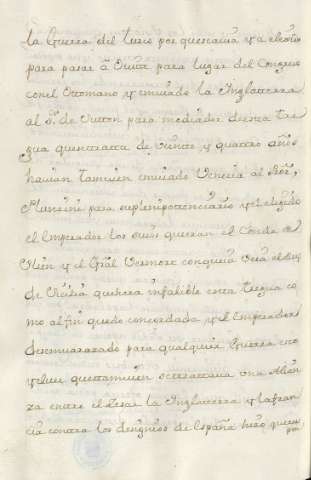 La Guerra del turco por que estava ya electo
para pasar â para lugar del Congreso
con el Ottomano y enviado la Inglaterra
al S.r de Sutton para mediador de esta tre
gua que se trata de veinte y quattro años
havian tamvien enviado Venecia al
para su plenipotenciario y elegido
el Emperador los suios que eran el Conde de
y el Gñal con que via el Rey
de Sicilia que era infalible esta tregua co
mo al fin quedo concordada y el Emperador
desembarazado para qualquier Guerra
que tamvien se tratava una Alian
za entre el Cesar la Inglaterra y la fran
cia contra los designios de España hizo que su